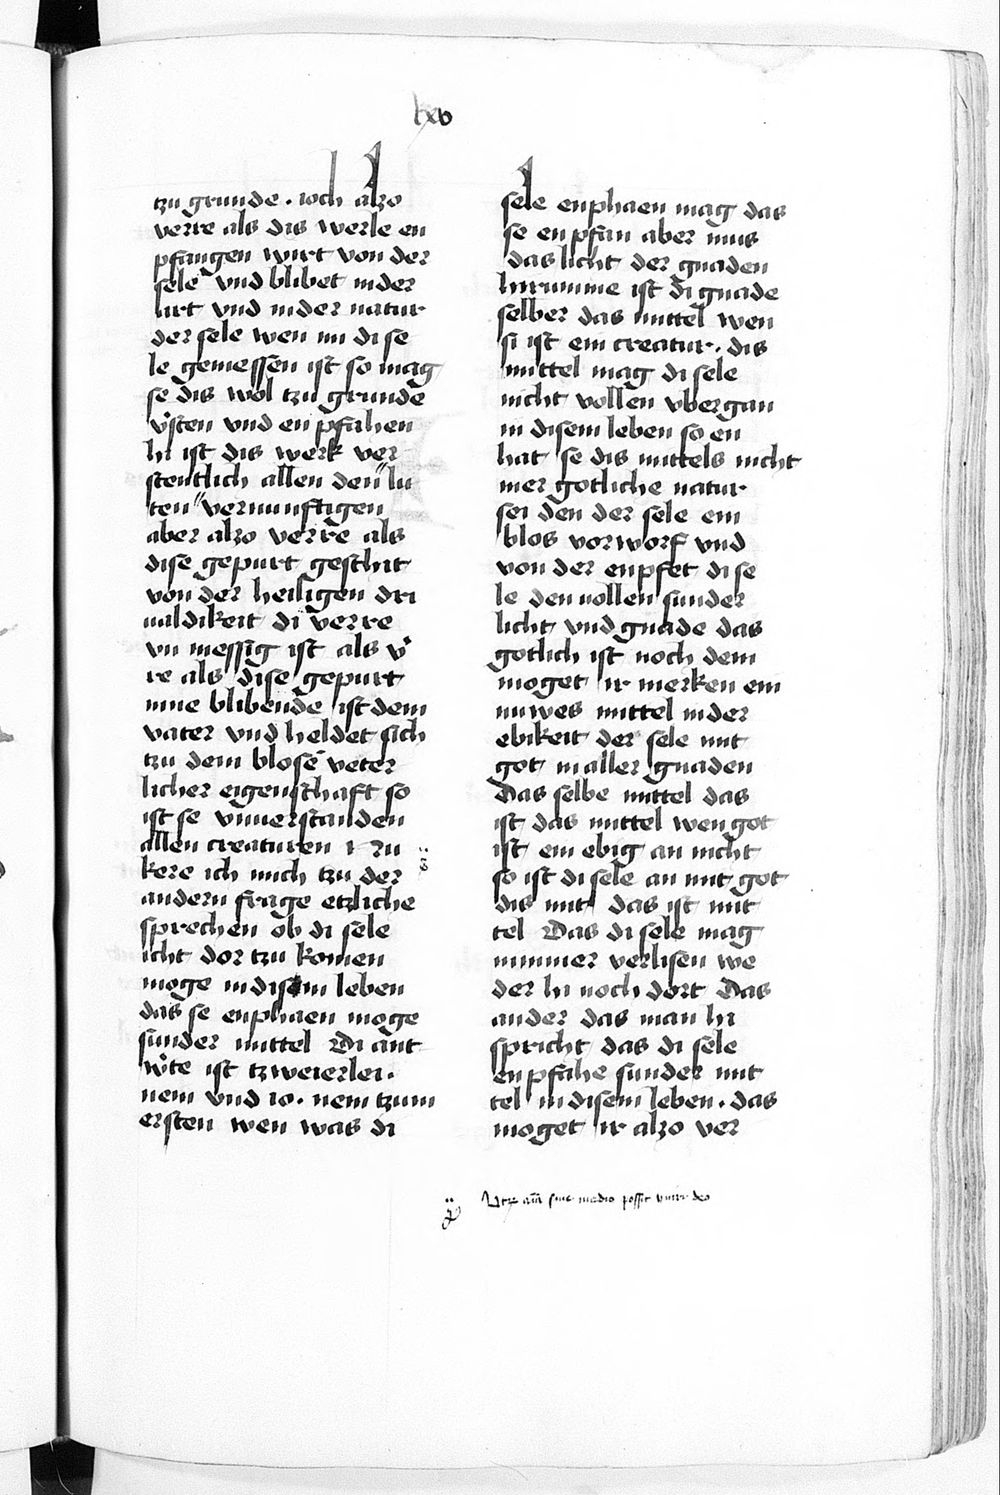 lxv
tzu grunde . ioch alzo
verre als dis werle en
pfangen wirt von der
sele vnd blibet in der
art vnd in der natur
der sele wen nu di se
le gemessen ist so mag
se dis wol tzu grunde
v̾sten vnd en pfahen
hi ist dis werk ver
stentlich allen den " lu
ten " vernunftigen
aber alzo verre als
dise gepurt geschit
von der heiligen dri
ualdikeit di verre
vn messig ist als v̾
re als dise gepurt
inne blibende ist dem
vater vnd heldet sich
tzu dem blose veter
licher eigenschaft so
ist se vnuerstanden
allen creaturen Zu
kere ich mich tzu der
andern frage etzliche
sprechen ob di sele
icht dor tzu komen
moge in disem leben
das se enphaen moge
sunder mittel Di ant
w̾te ist tzweierlei .
nein vnd io . nein tzum
ersten wen was di
sele enphaen mag das
se en pfan aber mus
das licht der gnaden
hirumme ist di gnade
selber das mittel wen
si ist ein creatur . dis
mittel mag di sele
nicht vollen vbergan
in disem leben so en
hat se dis mittels nicht
mer gotliche natur
sei den der sele ein
blos vorworf vnd
von der enpfet di se
le den vollen sunder
licht vnd gnade das
gotlich ist noch dem
moget ir merken ein
nuwes mittel in der
ebikeit der sele mit
got in aller gnaden
Das selbe mittel das
ist das mittel wen got
ist ein ebig an nicht
so ist di sele an mit got
dis mit das ist mit
tel Das di sele mag
nimmer verlisen we
der hi noch dort Das
ander das man hi
spricht das di sele
enpfahe sunder mit
tel in disem leben . das
moget ir alzo ver
Utrum aīa sine medio possit vniri deo